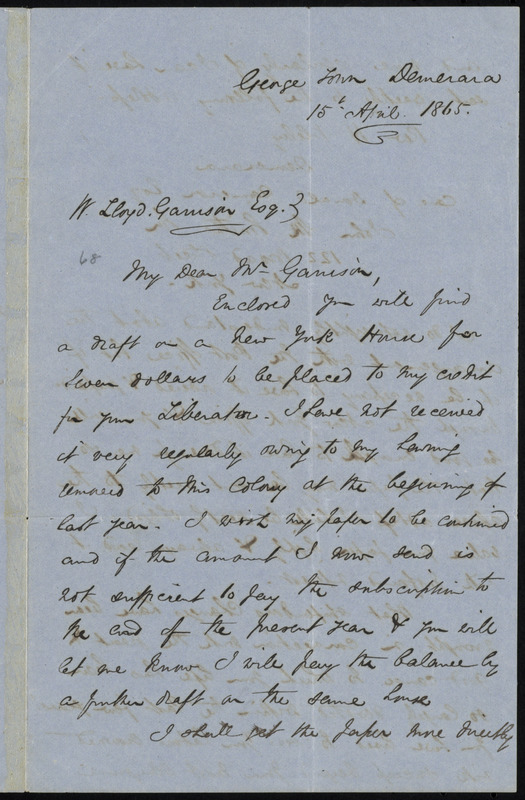 George Town Demerara
15t April. 1865.
W. Lloyd. Garrison Esq.
68
My Dear Mr Garrison,
Enclosed you will find
a draft on a New York House for
seven dollars to be placed to my credit
for your Liberator. I have not received
it very regularly owing to my having
removed to this Colony at the beginning of
last year. I wish my paper to be continued
and if the amount I now send is
not sufficient to pay the subscription to
the end of the present year & you will
let me know I will pay the balance by
a further draft on the same house
I shall get the paper more directly